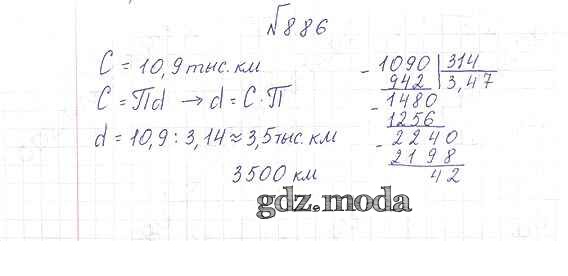 №886
C = 10,9 тыс. км
C = Пd → d = C·П
d = 10,9 : 3,14 ≈ 3,5 тыс. км
3500 км
- 1090 | 314
942 | 3,47
- 1480
1256
- 2240
2198
42
gdz.moda